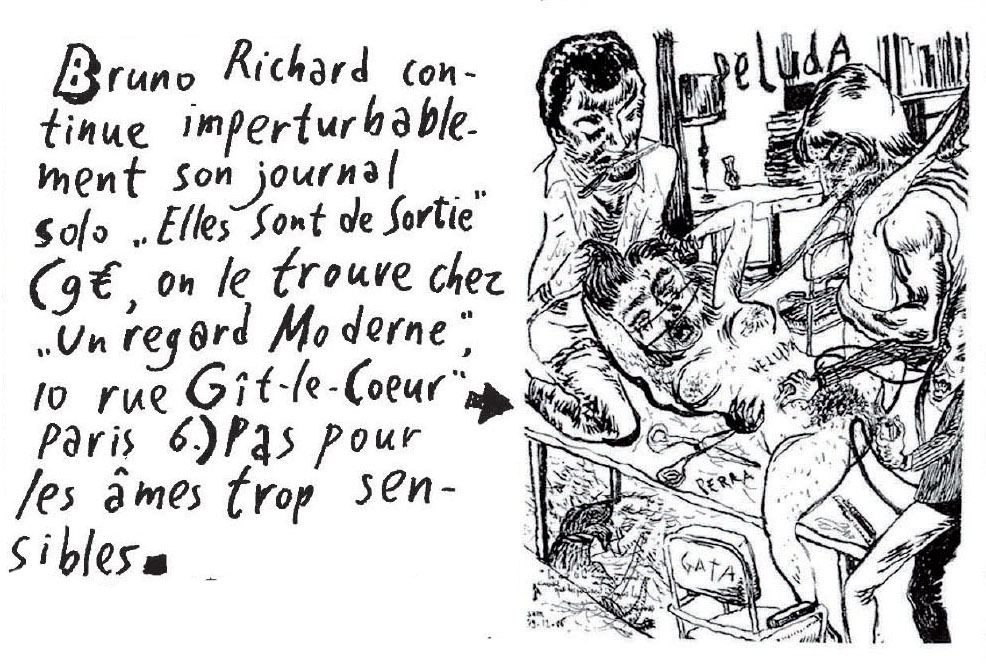 Bruno Richard con-
tinue imperturbable-
ment son journal
solo „Elles Sont de Sortie"
(9€, on le trouve chez
„Un regard Moderne",
10 rue Gît-le-Coeur"
Paris 6.) Pas pour
les âmes trop sen-
sibles.
PELUDA
VELUDA
PERRA
GATA